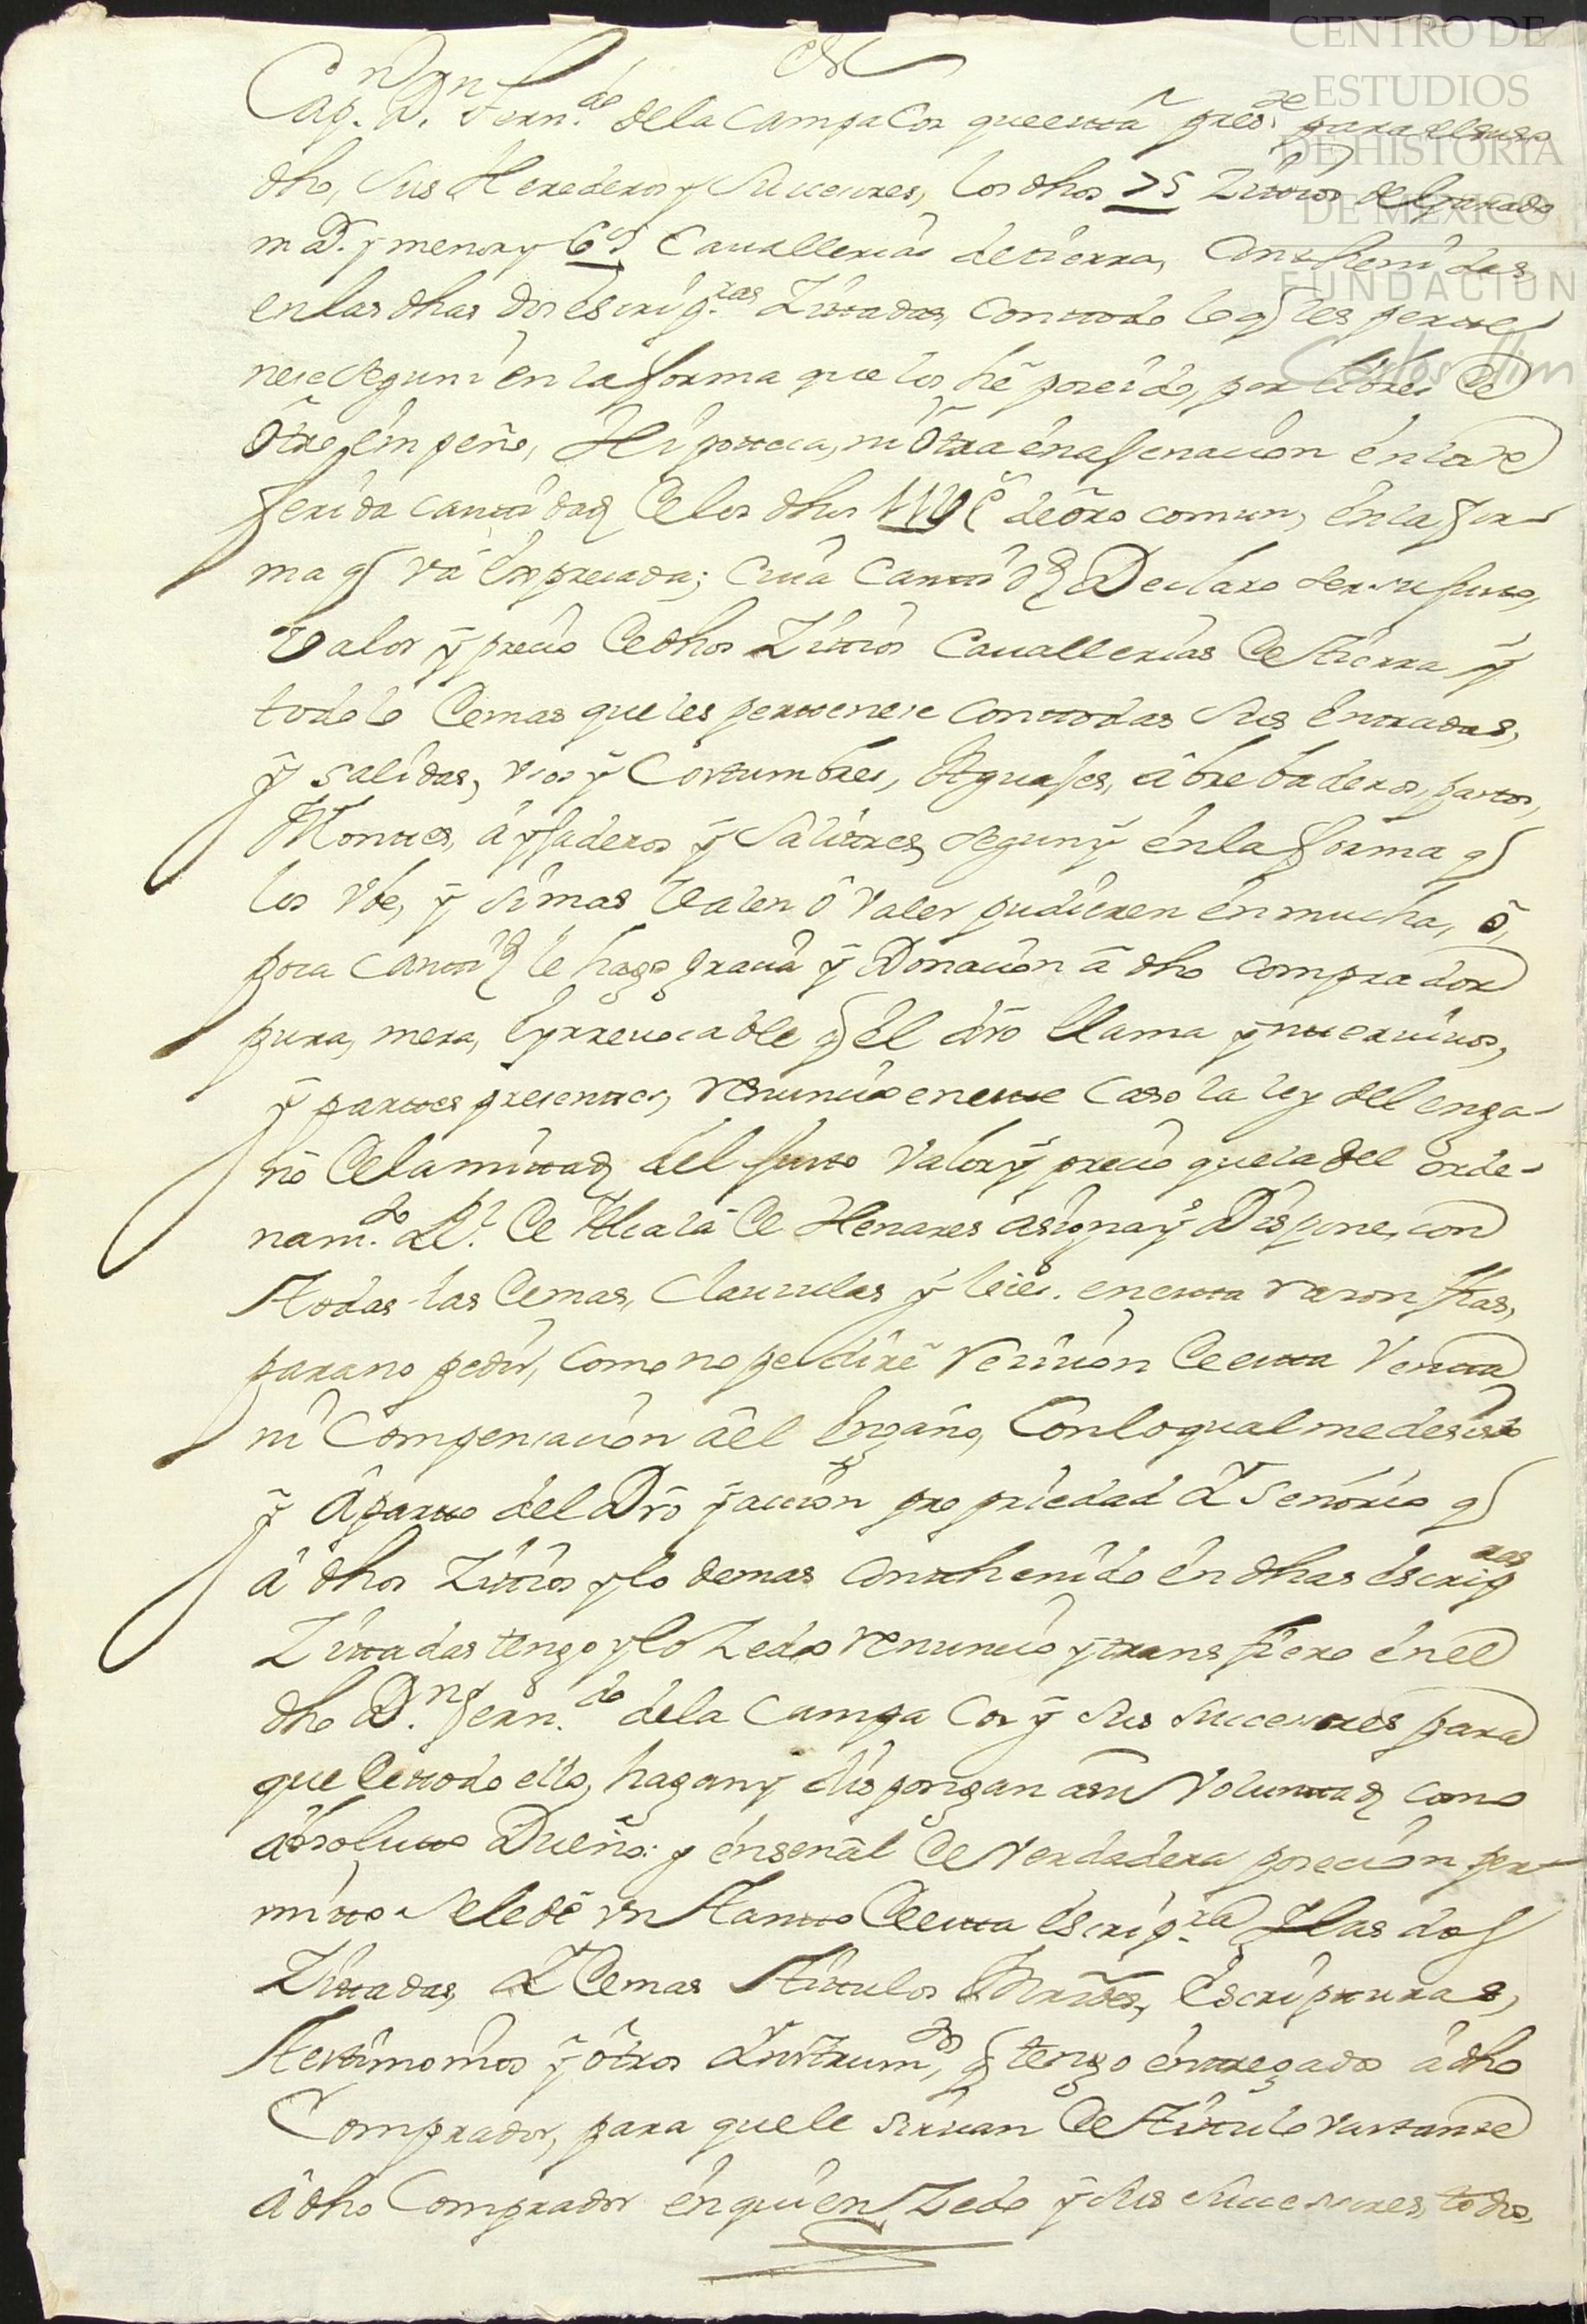 CENTRO DE
ESTUDIOS
DE HISTORIA
DE MEXICO
FUNDACIÓN
Carlos Slim
Cap.n D.n Fern.do de la Campa Cos que está pres.te para el suso
dho, sus Herederos y Succesores, los dhos 75 Zittios de Ganado
m D. y menor y Cauallerias de tierra, Conthenidas
en las dhas dos escrip.ras Zittadas, con todo lo q les pertte
nese segun i en la forma que los hé poseido, por libres de
òtro empeño, Hipotteca, ni òtra enajenacion en la re
ferida canttidad de los dhos de òro comun, en la for
ma q vá Expresada; cuia Cantid Declaro ser su justo,
Valor ÿ precio de dhos Zittios Cauallerias de tierra ÿ
todo lo demas que les perttenese con ttodas sus énttradas,
ÿ salidas, vsos ÿ Costumbres, Aguajes, ábrebaderos, pastos,
Monttes, á ÿ Salittres, segun ÿ en la forma q
los vbe, ÿ si mas valen ò valer pudieren en mucha, ò,
poca Cantid le hago gracia ÿ Donacion á dho comprador
pura, mera, é yrreuocable q él dro llama ynttervivos,
ÿ parttes presenttes, renuncio en estte caso la ley del enga
ño de la mittad del justto Valor ÿ precio que la del orde
nam.to R.l de Alcalá de Henares asigna ÿ Dispone, con
todas las demas, clausulas ÿ leies. en estta razon fhas,
para no pedir, como no pediré Resision de estta Ventta
ni Compensacion áel Engaño, Con lo qual me desisto
ÿ Apartto del Dro ÿ accion propriedad Y Señorio q
á dhos Zittios y lo demas Conthenido én dhas éscrip.ras
Zittadas tengo y lo Zedo renuncio y transfiero én el
dho D.n Fern.do de la Campa Cos ÿ sus succesores para
que de ttodo ello, hagan y dispongan á su Voluntad como
ábsolutto Dueño: y én señal de Verdadera posecion per
mitto se le dé vn tantto de estta éscrip.ra Y las dos
Zittadas, Y demas tittulos Mrds, éscripturas,
testimonios ÿ òtros Ynstrum.tos q tengo énttregados á dho
Comprador, para que le siruan de tittulo vastante
á dho Comprador én quien Zedo ÿ sus succesores, todos,